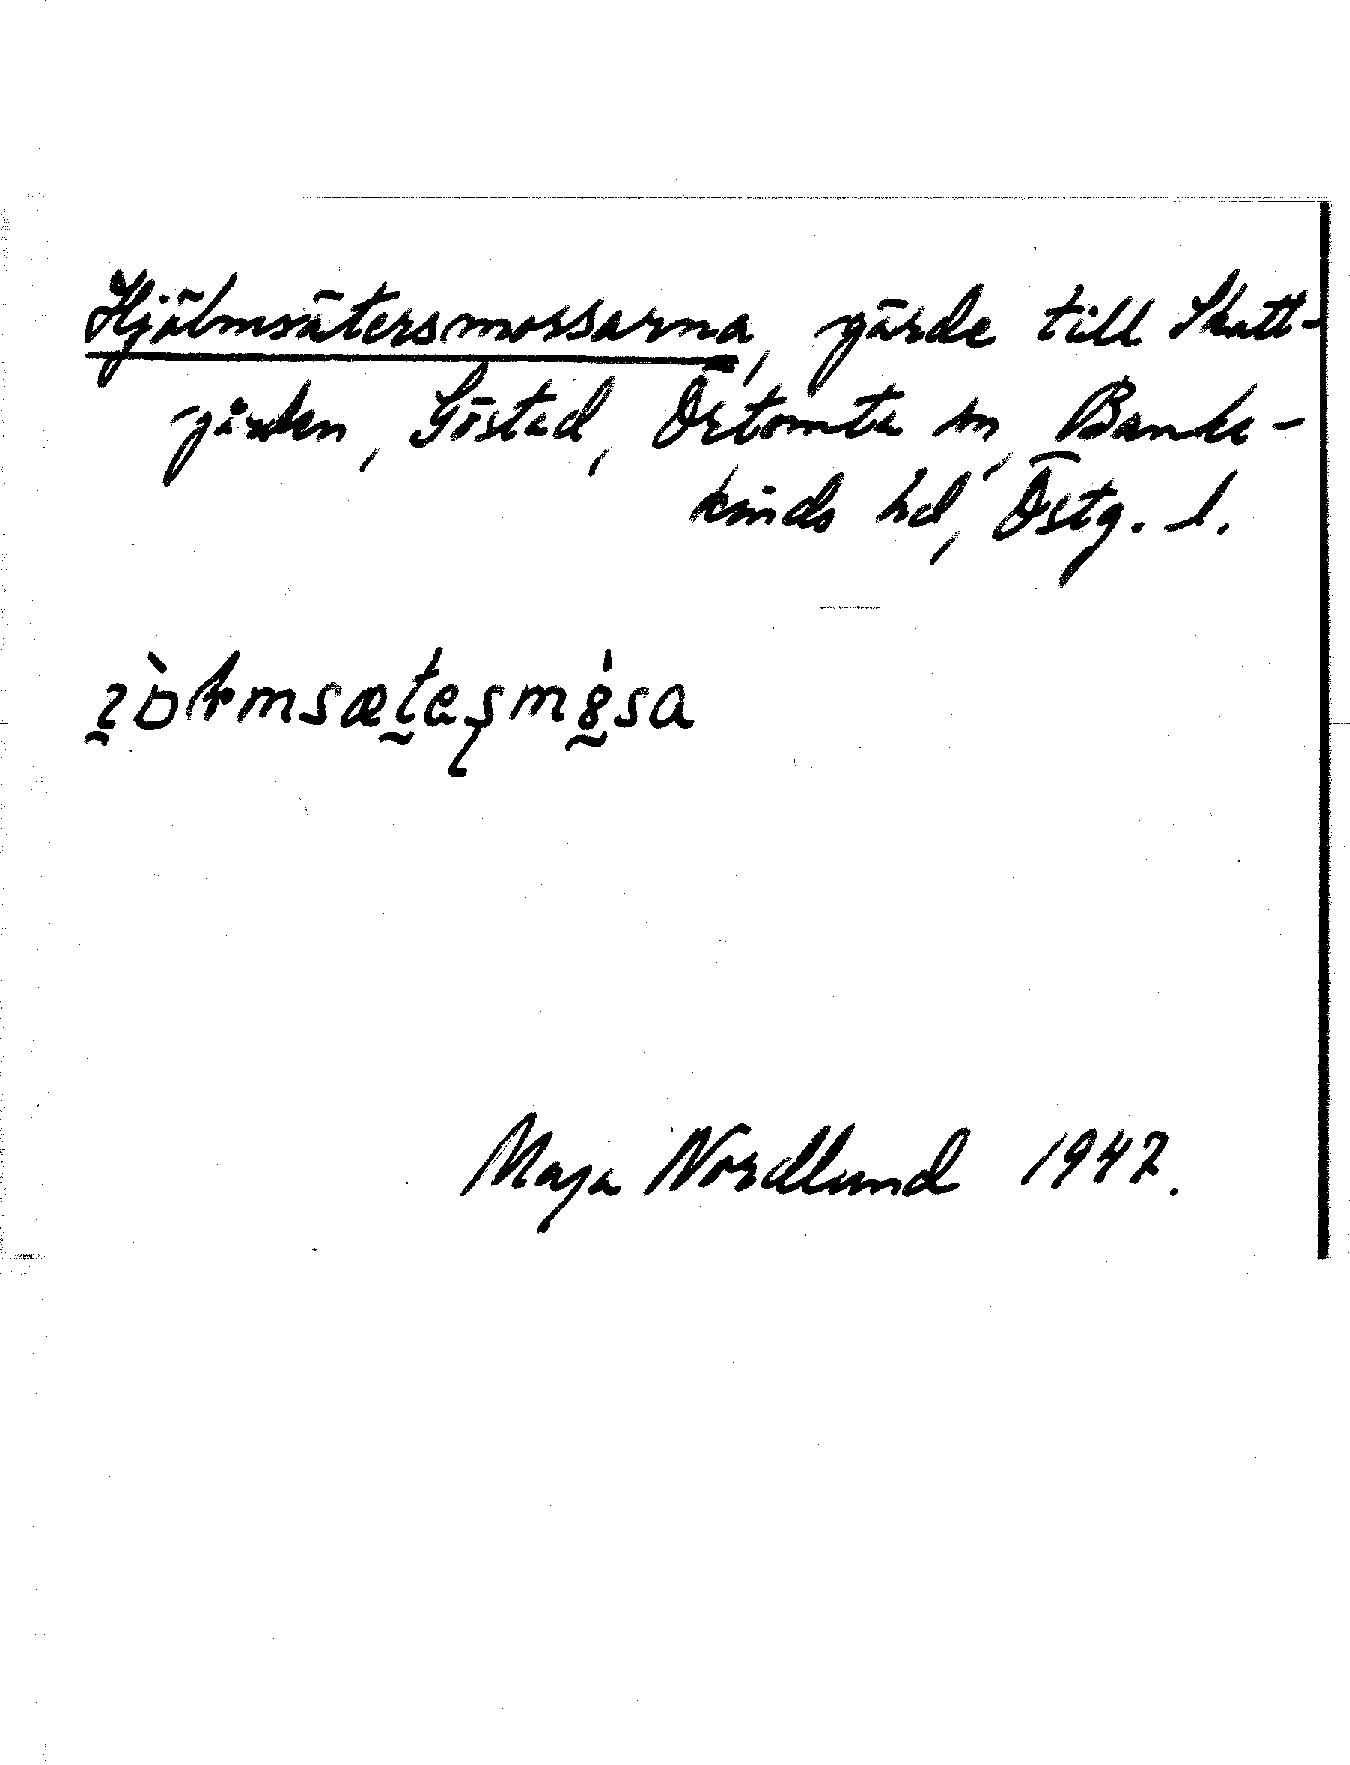 Hjälmsätersmossarna, gärde till Skatt-
gården, Göstad, Örtomta sn, Banke-
kinds hd, Östg. l.
Maja Nordlund 1947.